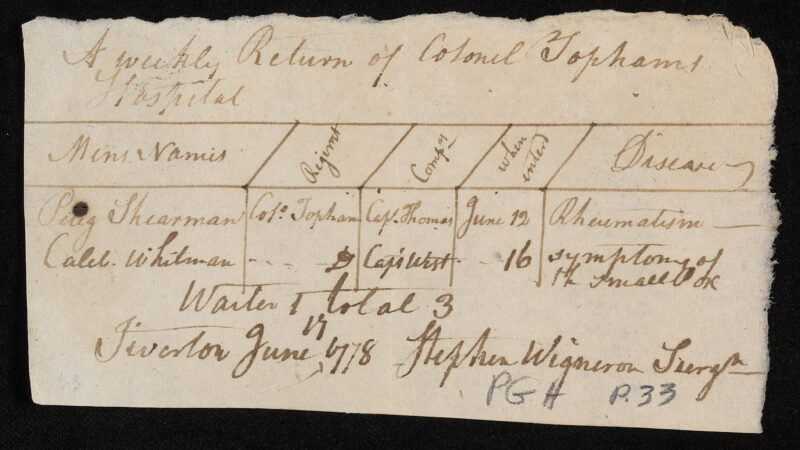 A weekly Return of Colonel Tophams
Hospital
Mens Names Regimt Compy when enterd Disease
Peleg Shearman Colo. Topham Capt. Thomas June 12 Rheumatism
Caleb Whitman Do Capt West 16 symptoms of
the small Pox
Waiter 1 total 3
Tiverton June 17 1778 Stephen Wigneron Surgn
PGH P.33